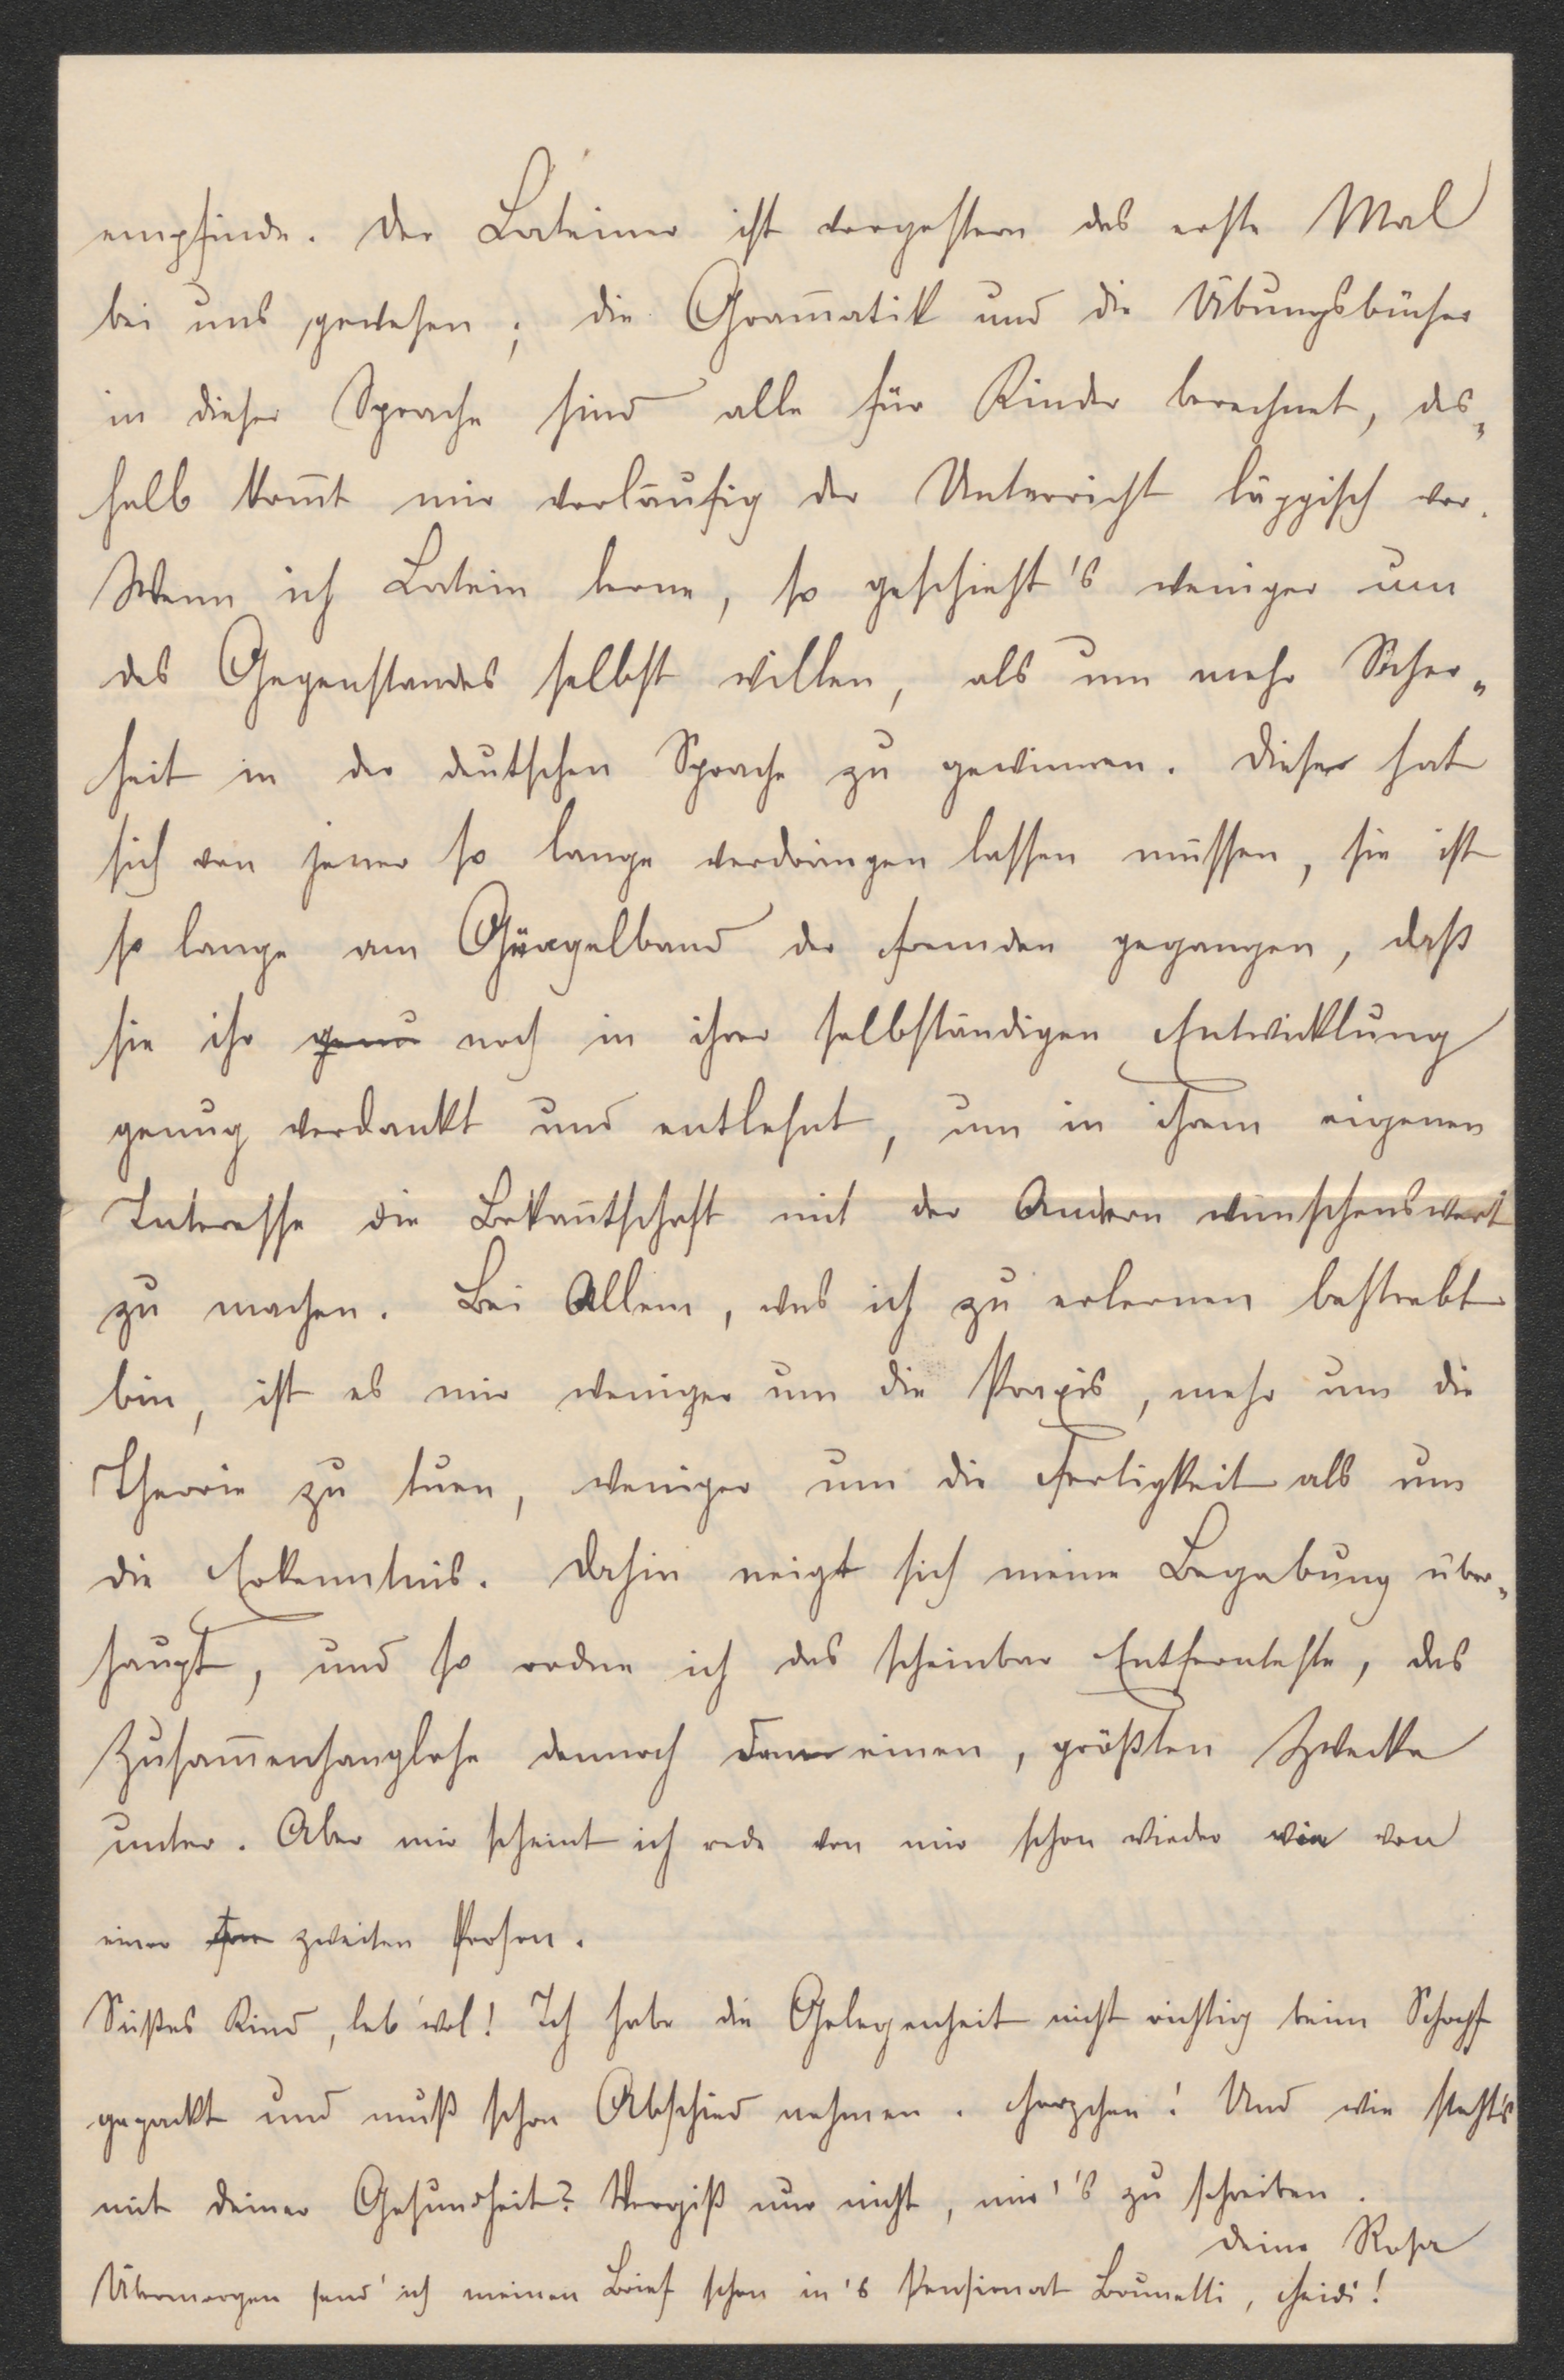 empfinde. Der Lateiner ist vorgestern das erste Mal
bei uns gewesen; die Gram̄atik und die Übungsbücher
in dieser Sprache sind alle für Kinder berechnet, des„
halb kom̄t mir vorläufig der Unterricht läppisch vor.
Wenn ich Latein lerne, so geschieht's weniger um
des Gegenstandes selbst willen, als um mehr Sicher„
heit in der deutschen Sprache zu gewinnen. Diese hat
sich von jener so lange verdrängen lassen müssen, sie ist
so lange am Gängelband der Fremden gegangen, daß
sie ihr genu noch in ihrer selbständigen Entwicklung
genug verdankt und entlehnt, um in ihrem eigenen
Interesse die Bekan̄tschaft mit der Andern wünschenswert
zu machen. Bei Allem, was ich zu erlernen bestrebt
bin, ist es mir weniger um die Praxis, mehr um die
Theorie zu tuen, weniger um die Fertigkeit als um
die Erkenntnis. Dahin neigt sich meine Begabung über„
haupt, und so ordne ich das scheinbar Entfernteste, das
Zusam̄enhanglose dennoch dem einen, größten Zwecke
unter. Aber mir scheint ich rede von mir schon wieder wie von
einer zweiten Person.
Süßes Kind, leb' wol! Ich habe die Gelegenheit nicht richtig beim Schopf
gepackt und muß schon Abschied nehmen. Herzchen! Und wie steht's
mit deiner Gesundheit? Vergiß nur nicht, mir's zu schreiben.
Deine Rosa
Übermorgen send' ich meinen Brief schon in's Pensionat Brunetti, Heidi!